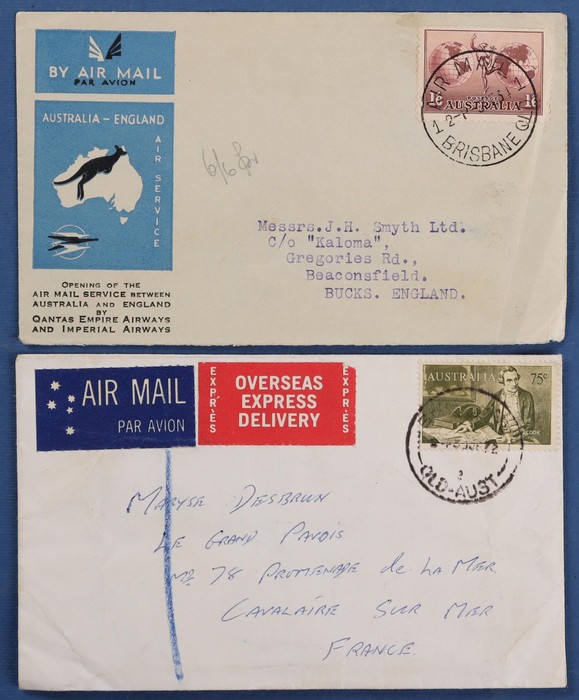 BY AIR MAIL
PAR AVION
AUSTRALIA – ENGLAND
AIR SERVICE
OPENING OF THE
AIR MAIL SERVICE BETWEEN
AUSTRALIA AND ENGLAND
BY
QANTAS EMPIRE AIRWAYS
AND IMPERIAL AIRWAYS
1/6 AUSTRALIA 1/6
AIR MAIL
BRISBANE
Messrs.J.H. Smyth Ltd.
C/o "Kaloma",
Gregories Rd.,
Beaconsfield.
BUCKS. ENGLAND.
AIR MAIL
PAR AVION
EXPRÈS
OVERSEAS
EXPRESS
DELIVERY
EXPRÈS
AUSTRALIA 75c
COOK
QLD-AUST
MARYSE DESBRUN
LE GRAND PAVOIS
78 PROMENADE de LA MER
CAVALAIRE SUR MER
FRANCE